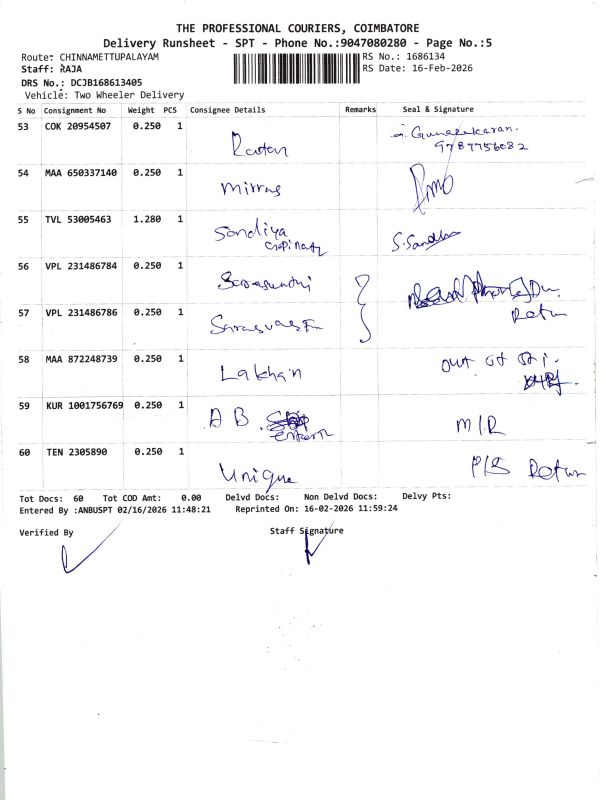 THE PROFESSIONAL COURIERS, COIMBATORE
Delivery Runsheet - SPT - Phone No.:9047080280 - Page No.:5
Route: CHINNAMETTUPALAYAM
RS No.: 1686134
Staff: RAJA
RS Date: 16-Feb-2026
DRS No.: DCJB168613405
Vehicle: Two Wheeler Delivery
S No Consignment No Weight PCS Consignee Details Remarks Seal & Signature
53 COK 20954507 0.250 1
9787756082
54 MAA 650337140 0.250 1
55 TVL 53005463 1.280 1 Sandiya
S. Sandhya
56 VPL 231486784 0.250 1
57 VPL 231486786 0.250 1 Return
58 MAA 872248739 0.250 1 Lakhain out of
59 KUR 1001756769 0.250 1 A B M/R
60 TEN 2305890 0.250 1 Unique P/S Return
Tot Docs: 60 Tot COD Amt: 0.00 Delvd Docs: Non Delvd Docs: Delvy Pts:
Entered By :ANBUSPT 02/16/2026 11:48:21 Reprinted On: 16-02-2026 11:59:24
Verified By Staff Signature